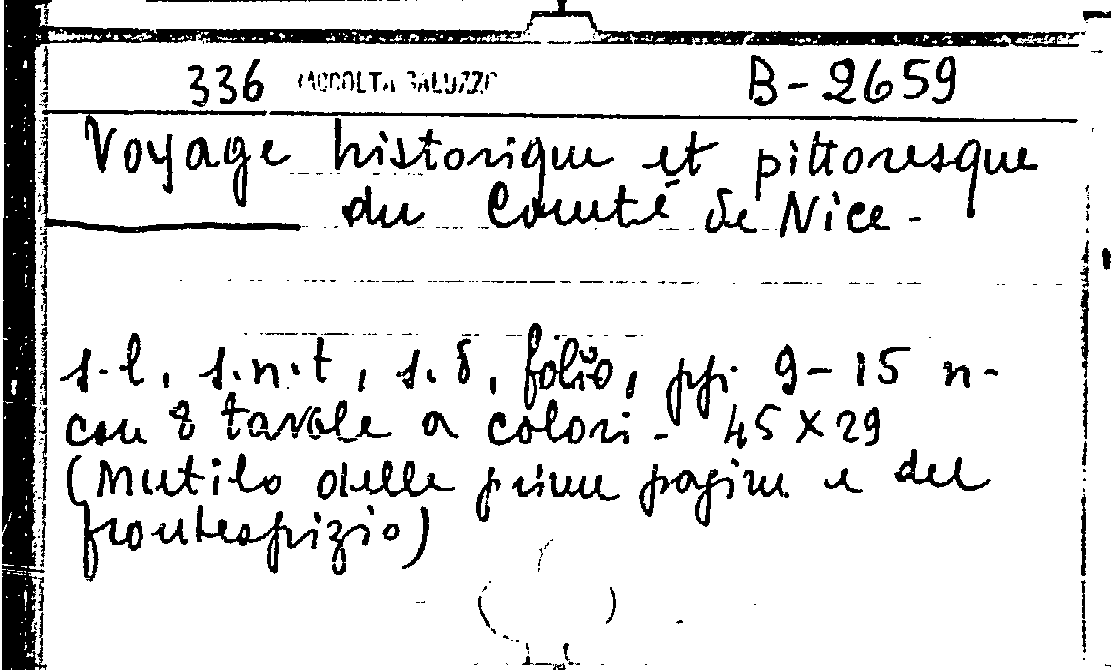 336 RACCOLTA SALUZZO B-2659
Voyage historique et pittoresque
du Comté de Nice -
s.l, s.n.t, s.d, folio, pp. 9-15 n-
con 8 tavole a colori - 45 x 29
(Mutilo delle prime pagine e del
frontespizio)